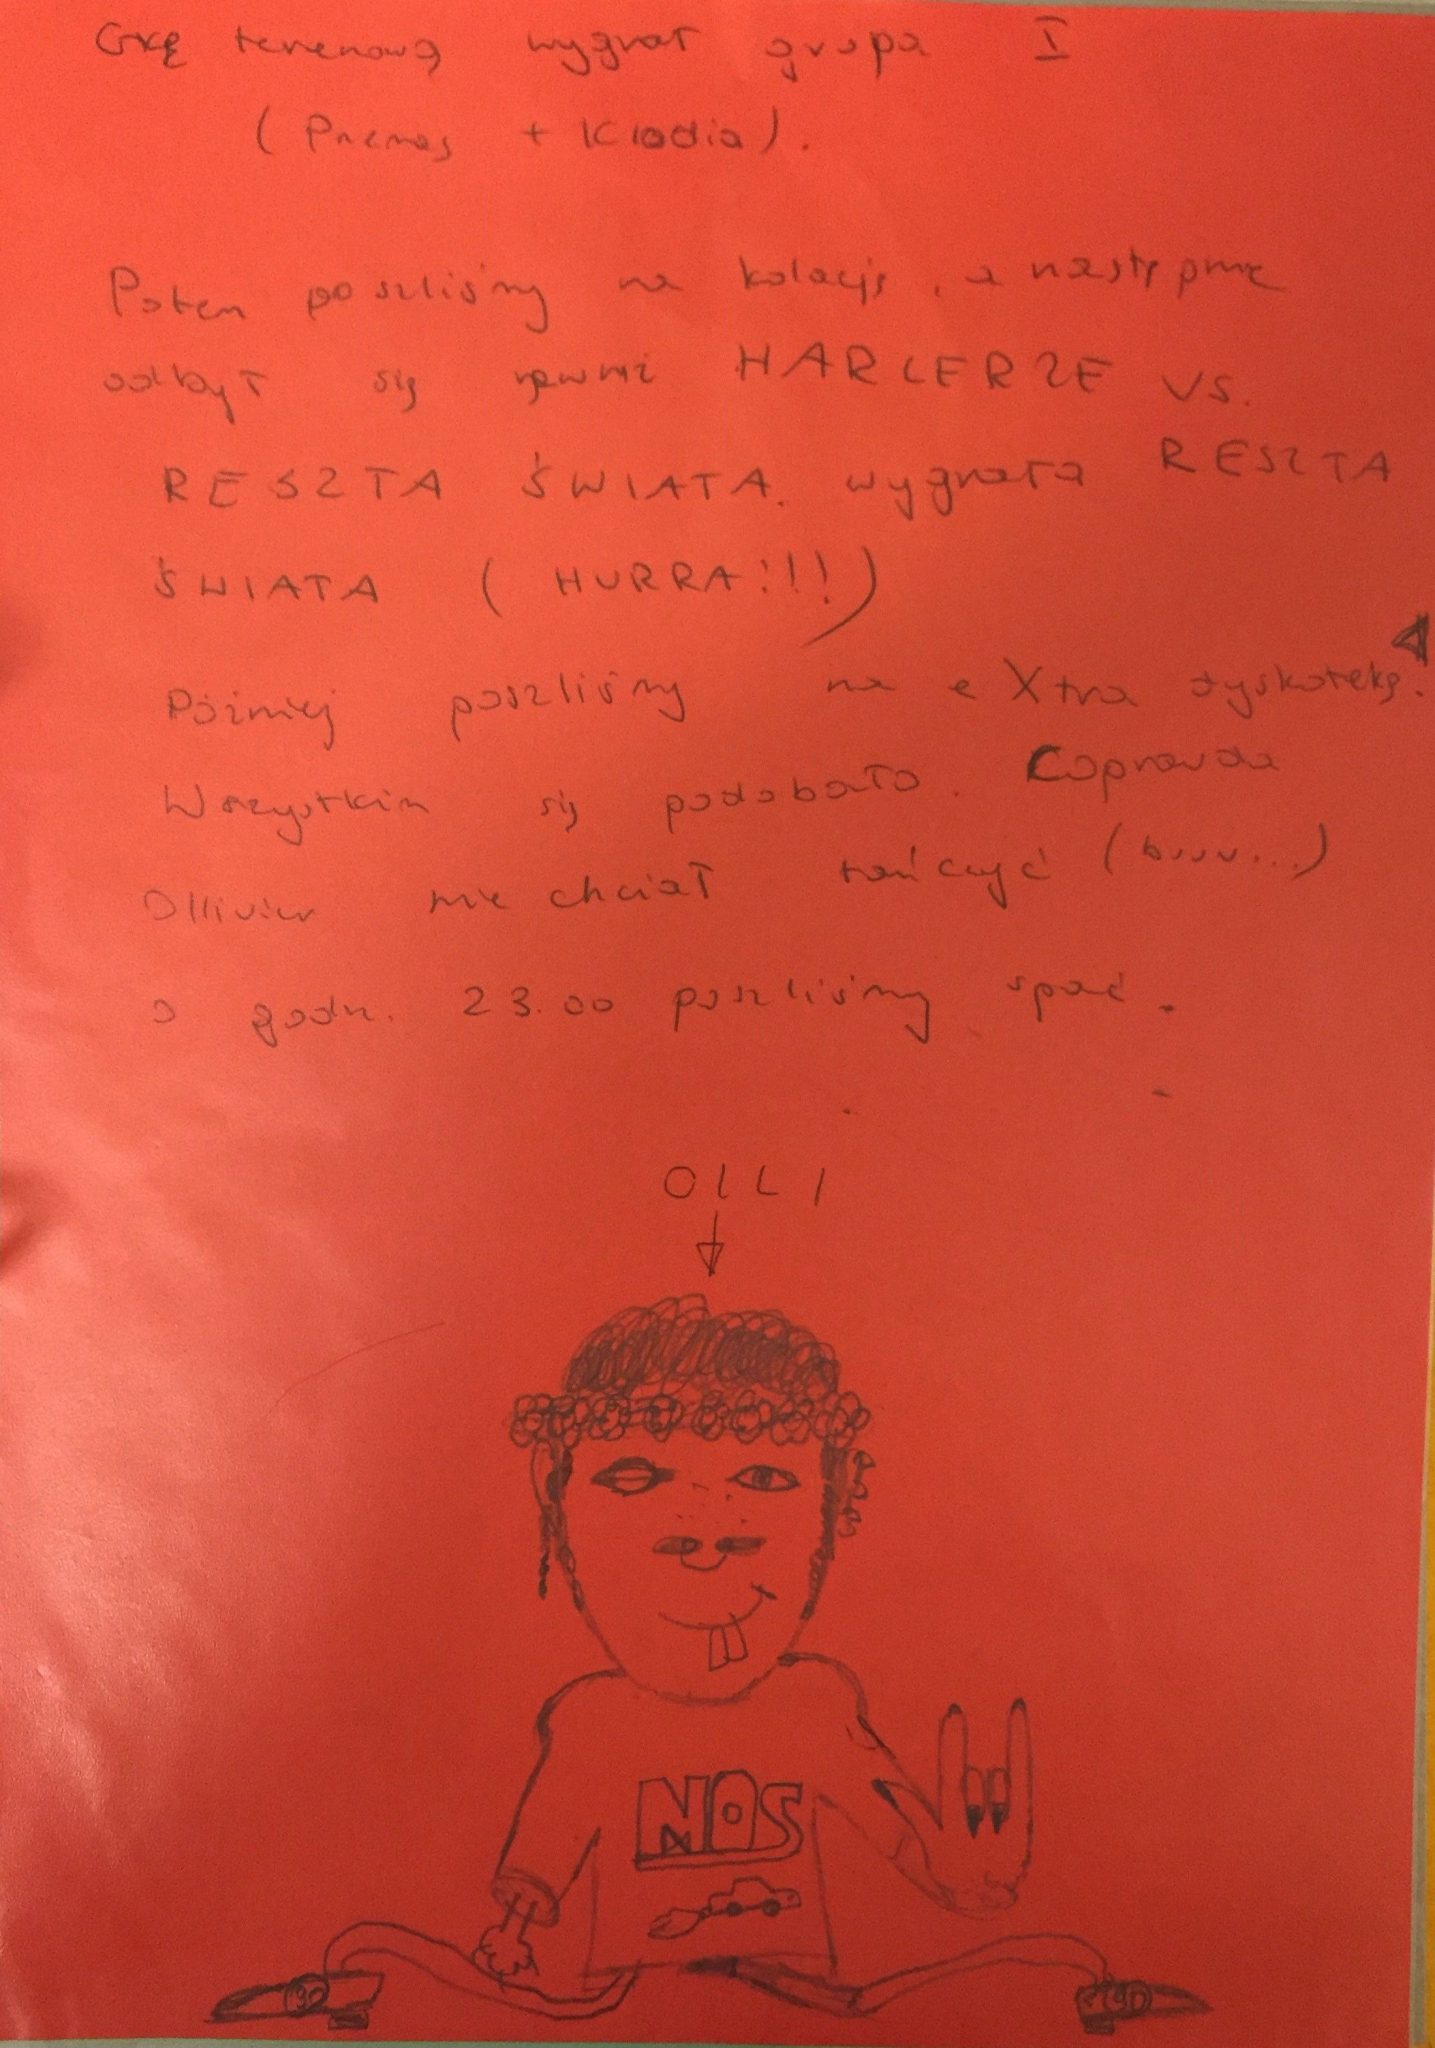 Grę terenową wygrał grupa I
( + Klodia).
Potem poszliśmy na kolację, a następnie
odbył się HARCERZE VS.
RESZTA ŚWIATA. wygrała RESZTA
ŚWIATA (HURRA!!!)
Później poszliśmy na eXtra dyskotekę.
Wszystkim się podobało. Coprawda
Ollivier nie chciał tańczyć (buuu...)
O godz. 23.00 poszliśmy spać.
OLLI
NOS